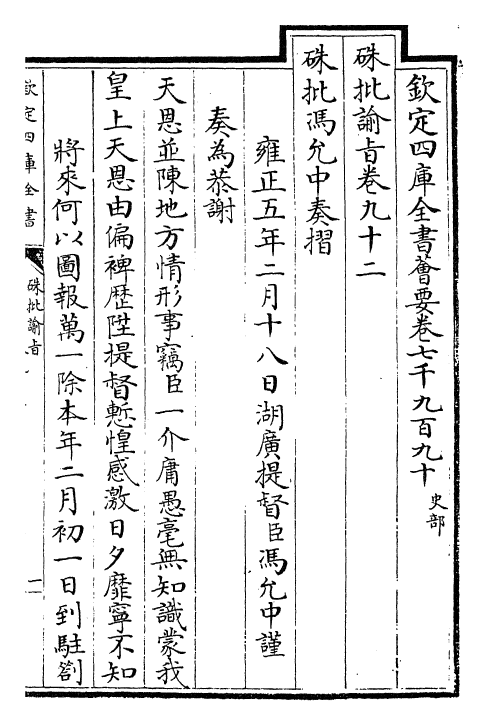 欽定四庫全書薈要卷七千九百九十
史部
硃批諭旨卷九十二
硃批馮允中奏摺
雍正五年二月十八日湖廣提督臣馮允中謹
奏為恭謝
天恩並陳地方情形事竊臣一介庸愚毫無知識蒙我
皇上天恩由偏裨歷陞提督慙惶感激日夕靡寧不知
將來何以圖報萬一除本年二月初一日到駐劄
欽定四庫全書
硃批諭旨
一